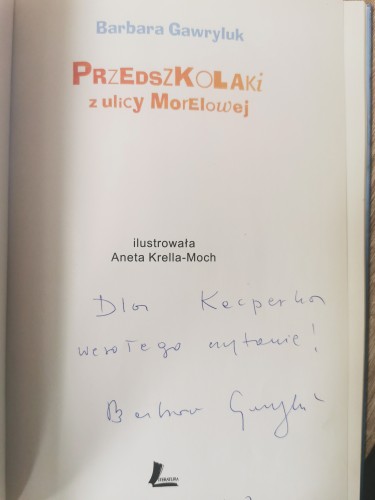 Barbara Gawryluk
PRZEDSZKOLAKi
z ulicy MorElowej
ilustrowała
Aneta Krella-Moch
Dla Kacperka
wesołego czytania!
Barbara Gawryluk
LITERATURA